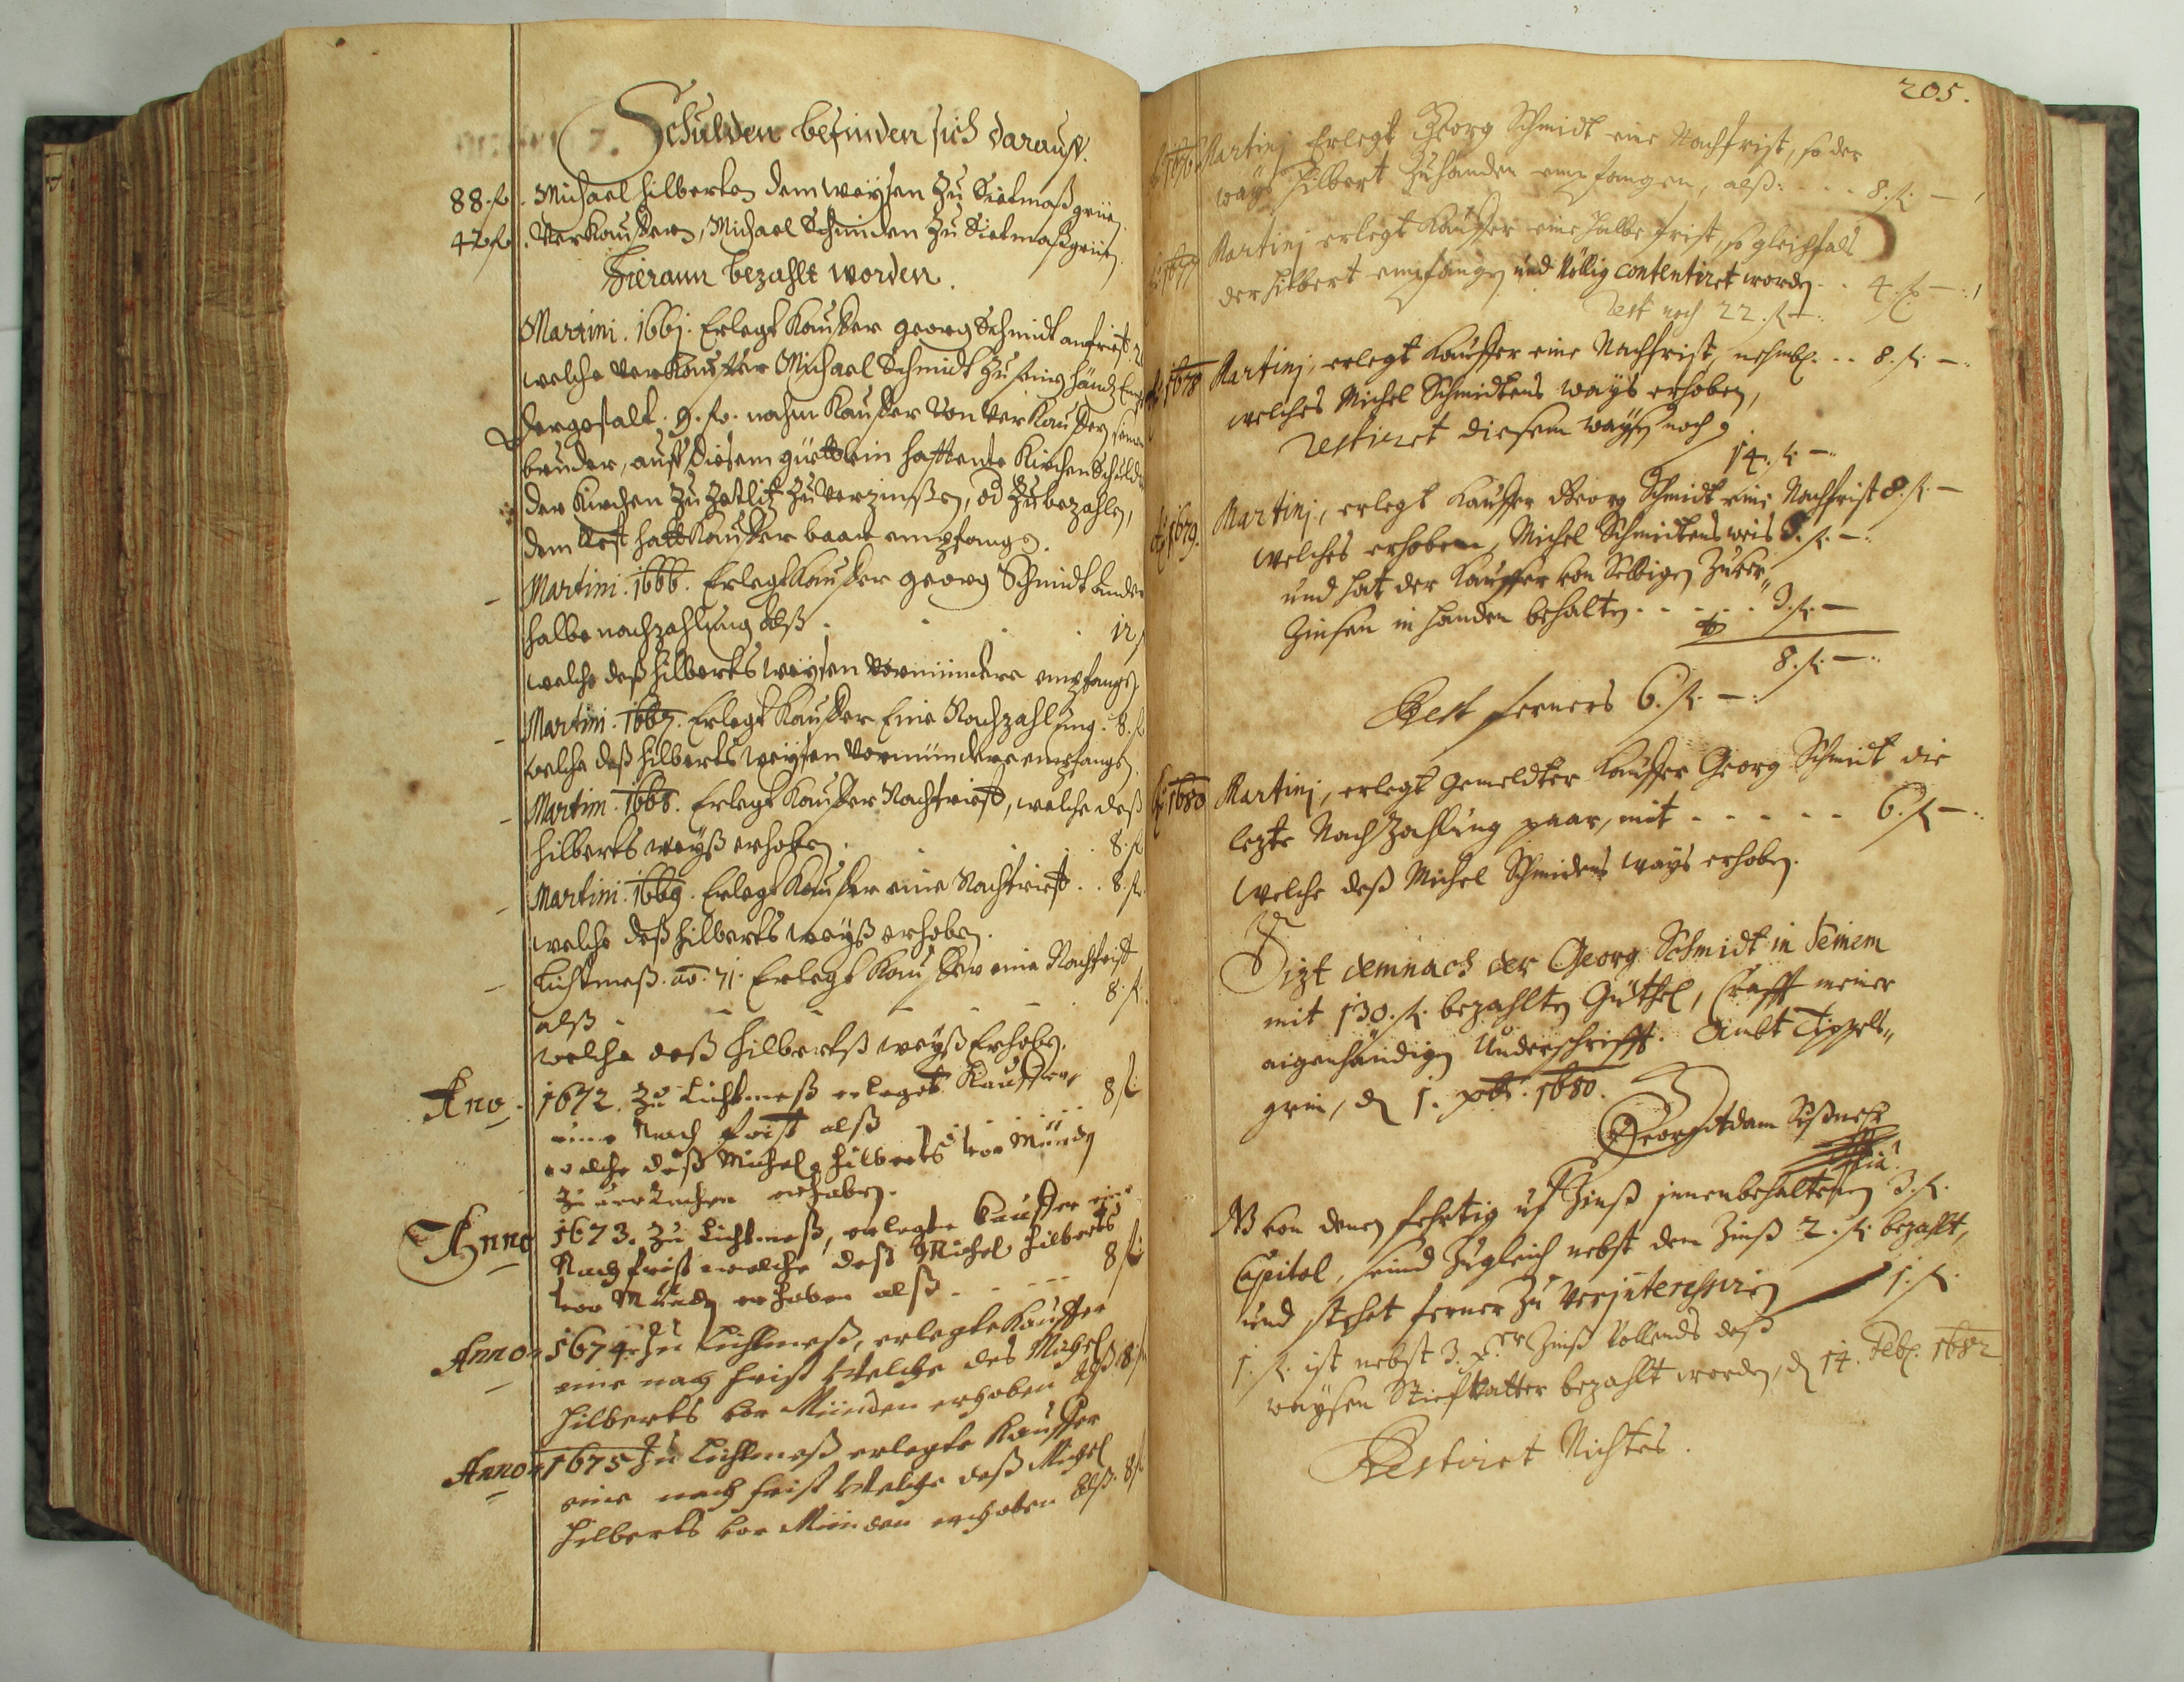 Schulden befinden sich darauff.
88. fl. Michael Hilberten dem weysen zu Dietmaßgrün
42. fl. Verkauffern, Michael Schmiden zu Dietmaßgrün.
Hieraun bezahlt worden.
Martini. 1665. Erlegt Kauffer Georg Schmidt anfrist
welche Verkauffer Michael Schmidt zu seinen händen
dergestalt. 9. fl. nahm Kauffer von Verkauffern seinem
bruder, auff diesem güettlein hafftente Kirchen Schulden
der Kirchen zu Zetlitz zu verzinßen, od zubezahlen,
dem Rest hatt Kauffer baar empfangen.
Martini. 1666. Erlegt Kauffer Georg Schmidt ander
halbe nachzahlung alß . . . 12
welche deß Hilberts weysen Vormündere empfangen.
Martini. 1667. Erlegt Kauffer Eine Nachzahlung. 8. fl.
welche deß Hilberts weysen Vormündere empfangen.
Martini. 1668. Erlegt Kauffer Nachfrist, welche deß
Hilberts weyß erhoben. . . . 8. fl.
Martini. 1669. Erlegt Kauffer eine Nachfrist . . 8. fl.
welche deß Hilberts weyß erhoben.
Lichtmeß. ao. 71. Erlegt Kauffer eine Nachfrist
alß . . . 8. fl.
welche deß Hilbertß weyß Erhoben.
Ano. 1672. Zu Lichtmeß erleget Kauffer,
eine Nach frist alß . . . 8 fl.
welche deß Michel Hilberts vor Münden
erhaben.
Anno 1673. Zu Lichtmeß, erlegte Kauffer eine
Nach frist welche deß Michel Hilberts
vor Münden erhaben alß . . . 8 fl.
Anno 1674 Zu Lichtmeß, erlegte Kauffer
eine nach frist Welche des Michel
Hilberts vor Münden erhoben alß 8 fl.
Anno 1675 Zu Lichtmeß erlegte Kauffer
eine nach frist Welche deß Michel
Hilberts vor Münden erhoben alß. 8 fl.
205.
Ao. 1676 Martinj Erlegt Georg Schmidt eine Nachfrist, so der
ways Hilbert zuhanden empfangen, alß: . . . 8. fl. —
Martinj erlegt Kauffer eine halbe frist, so gleichfals
der Hilbert empfangen und völlig contentiret worden . . 4. fl. —
rest noch 22. fl. —
Ao. 1678 Martinj, erlegt Kauffer eine Nachfrist, nehmbl. . . 8. fl. —
welches Michel Schmidtens ways erhoben,
restiret diesem waysen noch
14. fl. —
Ao. 1679. Martinj, erlegt Kauffer Georg Schmidt eine Nachfrist 8. fl. —
welches erhoben, Michel Schmidtens weis 5. fl. —
und hat der Kauffer von Selbigen Zuver„
Zinsen in handen behalten . . . . . . 3. fl. —
8. fl. —
Rest ferners 6. fl. —
Ao. 1680 Martinj, erlegt gemeldter Kauffer Georg Schmidt die
lezte Nach Zahlung paar, mit . . . . . 6. fl. —
welche deß Michel Schmidens ways erhoben.
Sizt demnach der Georg Schmidt in Seinem
mit 130. fl. bezahlten Güthel, Crafft meiner
aigenhändigen Underschrifft. Ambt Tippels„
grün, d 1. xbr. 1680.
Georg Adam
NB von denen uf Zinß innenbehaltenen 3. fl.
Capital, seind zugleich nebst dem Zinß 2. fl. bezahlt,
und stehet ferner zu verjnteressiren 1. fl.
1. fl. ist nebst 3. xer. Zinß Vollends deß
waysen Stiefvatter bezahlt worden, d 14. Feb. 1682
Restiret Nichtes.